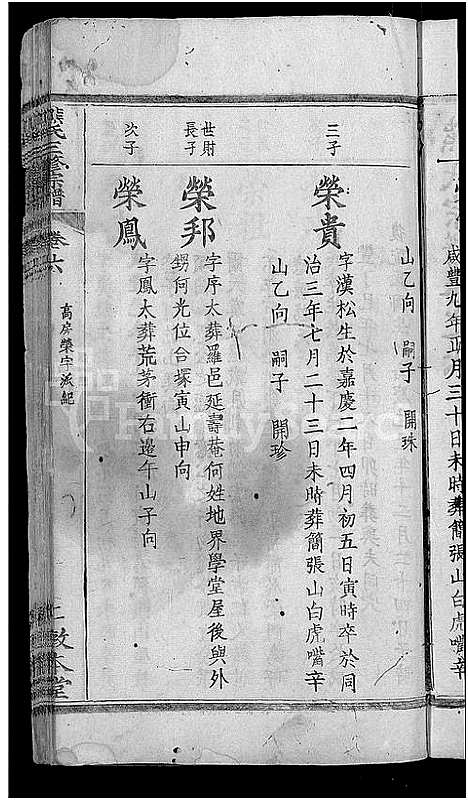 咸豐九年正月三十日未時葬簡張山白虎嘴辛
山乙向 嗣子 開珠
三子
榮貴
字漢松生於嘉慶二年四月初五日寅時卒於同
治三年七月二十三日未時葬簡張山白虎嘴辛
山乙向 嗣子 開珍
世財
長子
榮邦
字序太葬羅邑延壽菴何姓地界學堂屋後與外
甥何光位合塚寅山申向
次子
榮鳳
字鳳太葬荒茅衝右邊午山子向
熊氏三修宗譜
卷六
高房榮字派紀
敦本堂